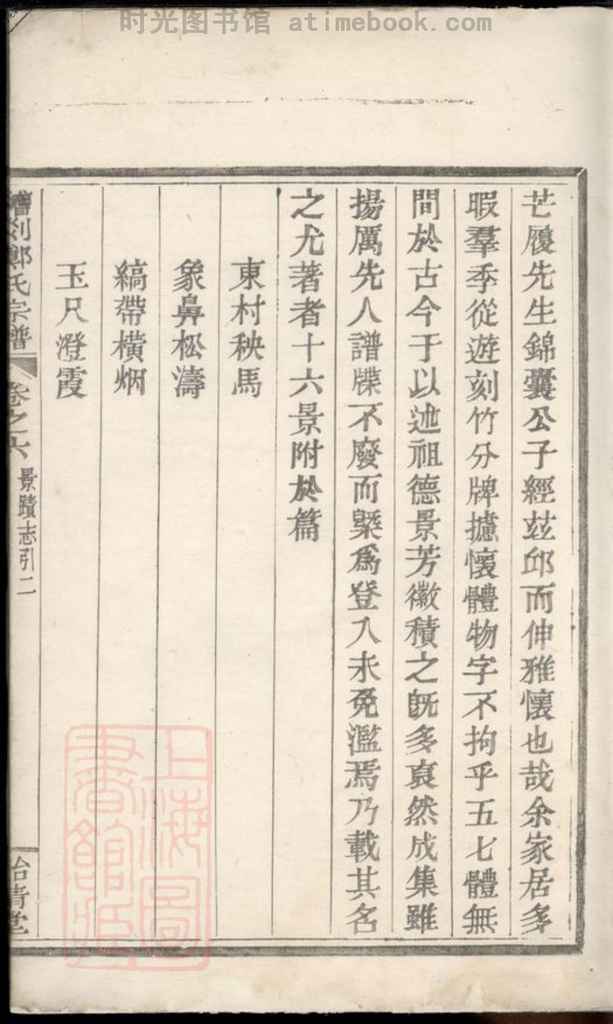 时光图书馆 atimebook.com
芒屨先生錦囊公子經茲邱而伸雅懷也哉余家居多
暇羣季從遊刻竹分牌攄懷體物字不拘乎五七體無
間於古今于以述祖德景芳徽積之既多裒然成集雖
揚厲先人譜牒不廢而槩爲登入未免濫焉乃載其名
之尤著者十六景附於篇
東村秧馬
象鼻松濤
縞帶橫烟
玉尺澄霞
鄭氏宗譜 卷之六 景蹟志引 二
上海圖書館藏